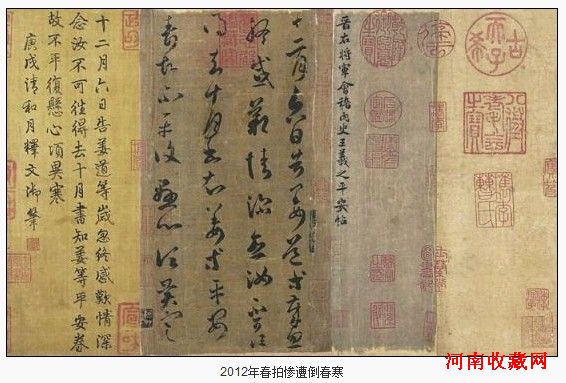 古希天子
八徵耄念之寶
晉右將軍會稽內史王羲之平安帖
十二月六日告姜道等歲忽
終感歎情深念汝不可往
得去十月書知姜等平安
壽故不平復懸心頃異寒
十二月六日告姜道等歲忽終感歎情深
念汝不可往得去十月書知姜等平安壽
故不平復懸心頃異寒
庚戌清和月釋文御筆
河南收藏网
2012年春拍惨遭倒春寒